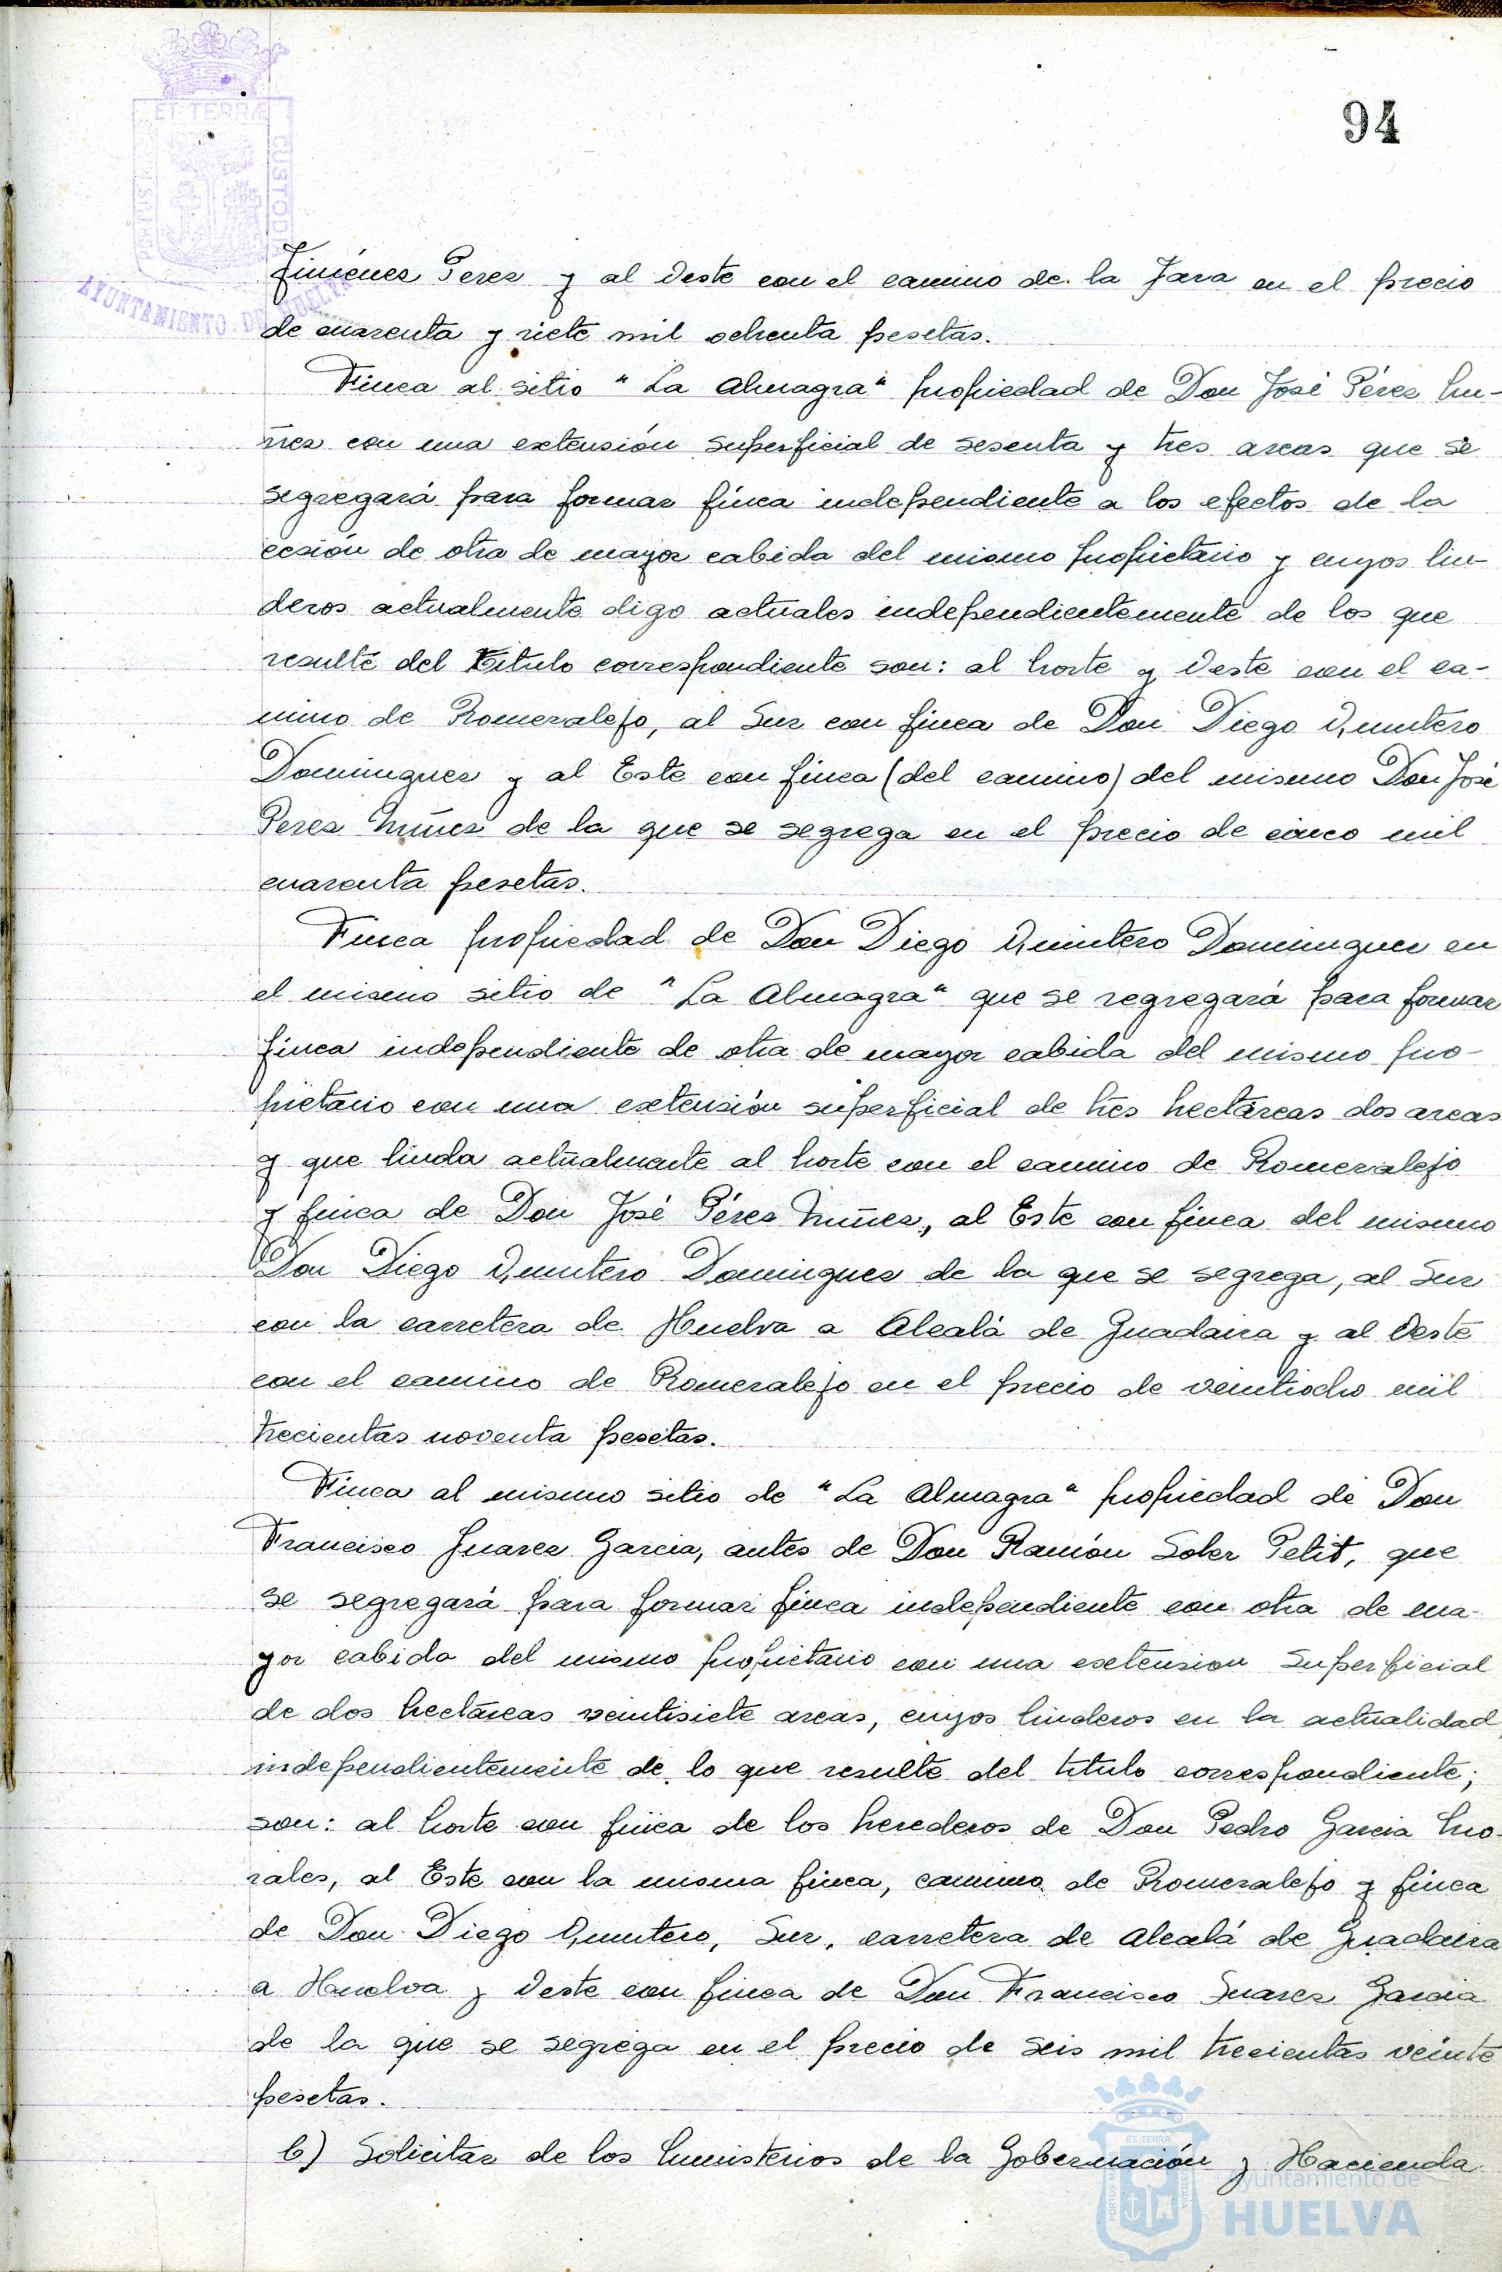 94
ET TERRÆ
CUSTODIA
PORTUS MARIS
AYUNTAMIENTO DE HUELVA
Jiménez Perez y al Oeste con el camino de la Jara en el precio
de cuarenta y siete mil ochenta pesetas.
Finca al sitio "La Almagra" propiedad de Don José Pérez Nu-
ñez con una extensión superficial de sesenta y tres areas que se
segregará para formar finca independiente a los efectos de la
cesión de otra de mayor cabida del mismo propietario y cuyos lin-
deros actualmente digo actuales independientemente de los que
resulte del título correspondiente son: al Norte y Oeste con el ca-
mino de Romeralejo, al Sur con finca de Don Diego Quintero
Dominguez y al Este con finca (del camino) del mismo Don José
Perez Nuñez de la que se segrega en el precio de cinco mil
cuarenta pesetas.
Finca propiedad de Don Diego Quintero Dominguez en
el mismo sitio de "La Almagra" que se segregará para formar
finca independiente de otra de mayor cabida del mismo pro-
pietario con una extensión superficial de tres hectáreas dos areas
y que linda actualmente al Norte con el camino de Romeralejo
y finca de Don José Pérez Nuñez, al Este con finca del mismo
Don Diego Quintero Dominguez de la que se segrega, al Sur
con la carretera de Huelva a Alcalá de Guadaira y al Oeste
con el camino de Romeralejo en el precio de veintiocho mil
trecientas noventa pesetas.
Finca al mismo sitio de "La Almagra" propiedad de Don
Francisco Juarez Garcia, antes de Don Ramón Soler Petit, que
se segregará para formar finca independiente con otra de ma-
yor cabida del mismo propietario con una extension superficial
de dos hectáreas veintisiete areas, cuyos linderos en la actualidad,
independientemente de lo que resulte del titulo correspondiente;
son: al Norte con finca de los herederos de Don Pedro Garcia Mo-
rales, al Este con la misma finca, camino de Romeralejo y finca
de Don Diego Quintero, Sur, carretera de Alcalá de Guadaira
a Huelva y Oeste con finca de Don Francisco Suarez Garcia
de la que se segrega en el precio de seis mil trecientas veinte
pesetas.
b) Solicitar de los Ministerios de la Gobernación y Hacienda
Ayuntamiento de
HUELVA